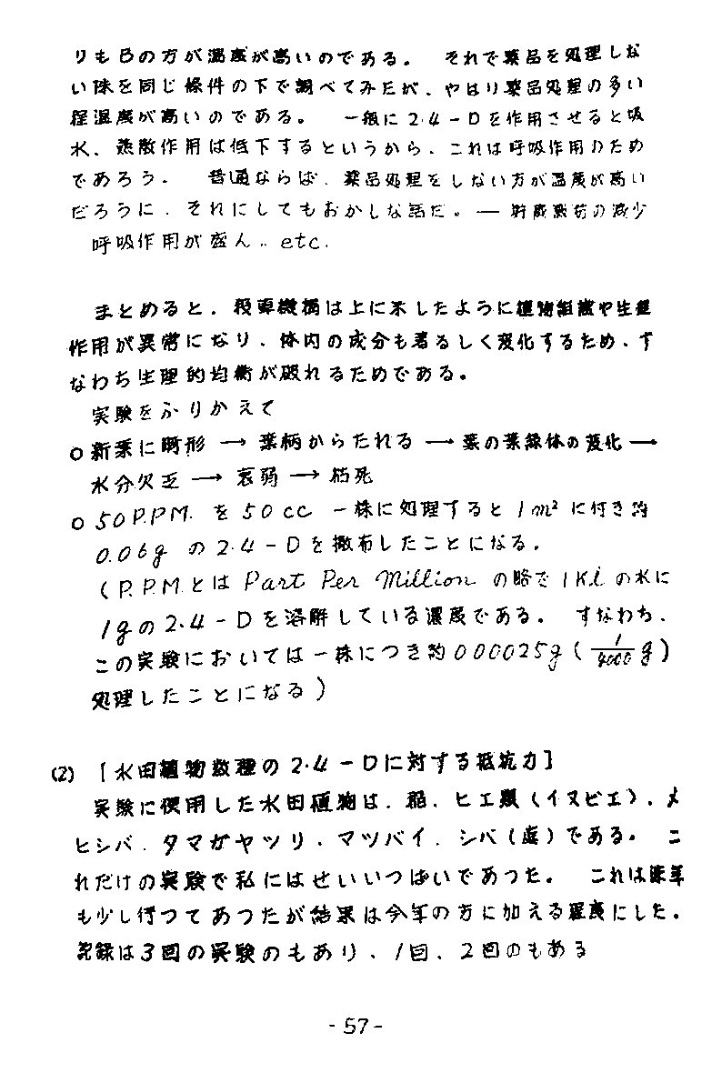 りもBの方が温度が高いのである。　それで薬品を処理しな
い体を同じ條件の下で調べてみたが、やはり薬品処理の多い
程温度が高いのである。　一般に2・4－Dを作用させると吸
水、蒸散作用は低下するというから、これは呼吸作用のため
であろう。　普通ならば、薬品処理をしない方が温度が高い
だろうに、それにしてもおかしな話だ。―貯蔵澱粉の減少
呼吸作用が盛ん.. etc.
まとめると、殺草機構は上に示したように植物組織や生理
作用が異常になり、体内の成分も著るしく変化するため、す
なわち生理的均衡が破れるためである。
実験をふりかえて
○新葉に畸形→葉柄からたれる→葉の葉緑体の変化→
水分欠乏→衰弱→枯死
○50P.P.M.を50cc一株に処理すると1m²に付き約
0.06gの2・4－Dを撒布したことになる.
(P.P.MとはPart Per Millionの略で1Klの水に
1gの2・4－Dを溶解している濃度である。　すなわち、
この実験においては一株につき約000025g(1/4000g)
処理したことになる)
(2)　[水田植物数種の2・4－Dに対する抵抗力]
実験に使用した水田植物は、稲、ヒエ類(イヌビエ)、メ
ヒシバ、タマガヤツリ・マツバイ、シバ(芝)である。　こ
れだけの実験で私にはせいいつぱいであつた。　これは昨年
も少し行つてあつたが結果は今年の方に加える程度にした。
記録は3回の実験のもあり、1回、2回のもある
- 57 -